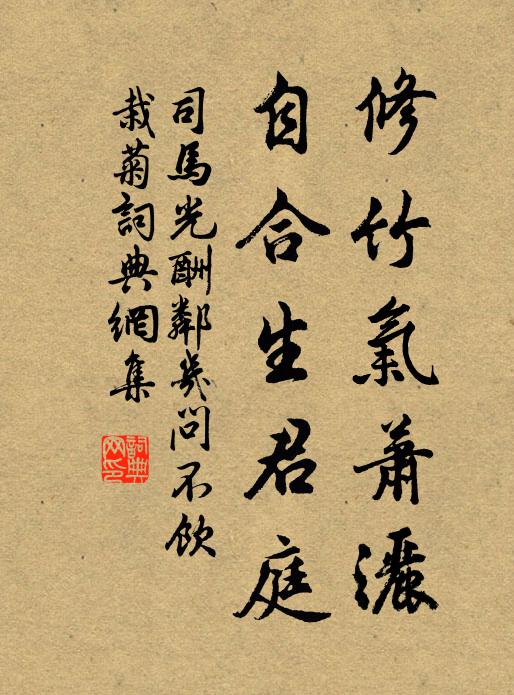 修竹氣蕭灑
自合生君庭
司馬光酬鄰幾問不飲
栽菊詞典網集
詞典
网印